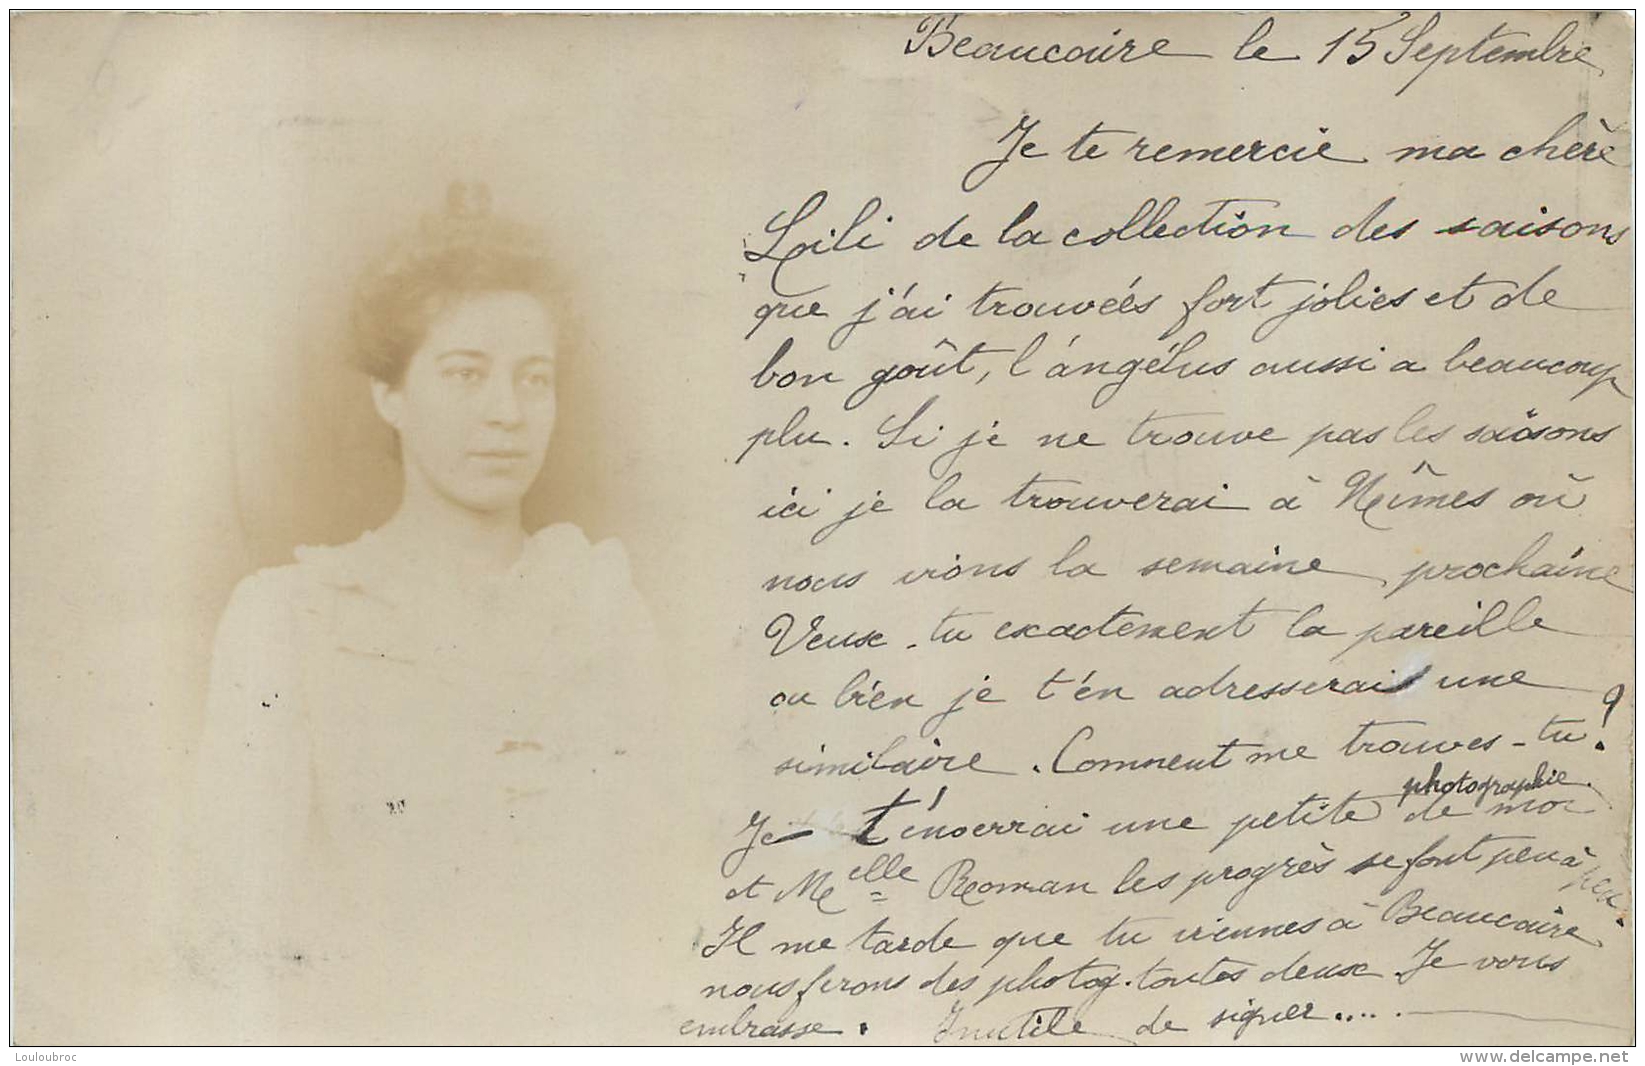 Beaucaire le 15 Septembre
Je te remercie ma chère
Lili de la collection des saisons
que j'ai trouvées fort jolies et de
bon goût, l'angélus aussi a beaucoup
plu. Si je ne trouve pas les saisons
ici je la trouverai à Nîmes où
nous irons la semaine prochaine
Veux-tu exactement la pareille
ou bien je t'en adresserai une
similaire. Comment me trouves-tu?
photographie
Je t'enverrai une petite de moi
et Melle Roman les progrès se font peu à peu.
Il me tarde que tu viennes à Beaucaire
nous ferons des photog. toutes deux Je vous
embrasse. Inutile de signer.....
Louloubroc
www.delcampe.net